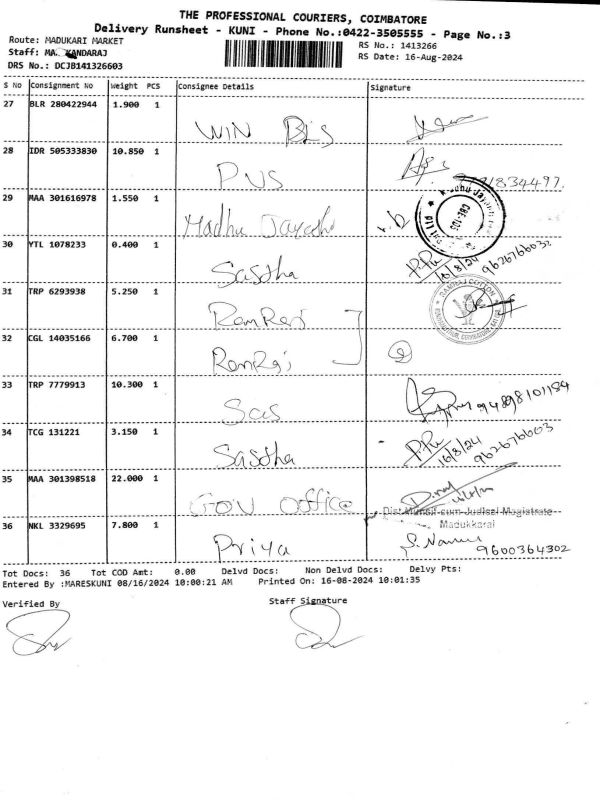 THE PROFESSIONAL COURIERS, COIMBATORE
Delivery Runsheet - KUNI - Phone No.:0422-3505555 - Page No.:3
Route: MADUKARI MARKET
RS No.: 1413266
Staff: MA. KANDARAJ
RS Date: 16-Aug-2024
DRS No.: DCJB141326603
S No Consignment No Weight PCS Consignee Details Signature
27 BLR 280422944 1.900 1 WIN BLS
28 IDR 505333830 10.850 1 PVS
29 MAA 301616978 1.550 1 Madhu Jayadhi
30 YTL 1078233 0.400 1 Sastha 16/8/24 9626766032
31 TRP 6293938 5.250 1 RamRaj
32 CGL 14035166 6.700 1 RamRaj
33 TRP 7779913 10.300 1 Sas
34 TCG 131221 3.150 1 Sastha 16/8/24 962676603
35 MAA 301398518 22.000 1 GOV office
Dist Munsif-cum-Judical Magistrate
Madukkarai
36 NKL 3329695 7.800 1 Priya 9600364302
Tot Docs: 36 Tot COD Amt: 0.00 Delvd Docs: Non Delvd Docs: Delvy Pts:
Entered By :MARESKUNI 08/16/2024 10:00:21 AM Printed On: 16-08-2024 10:01:35
Verified By Staff Signature